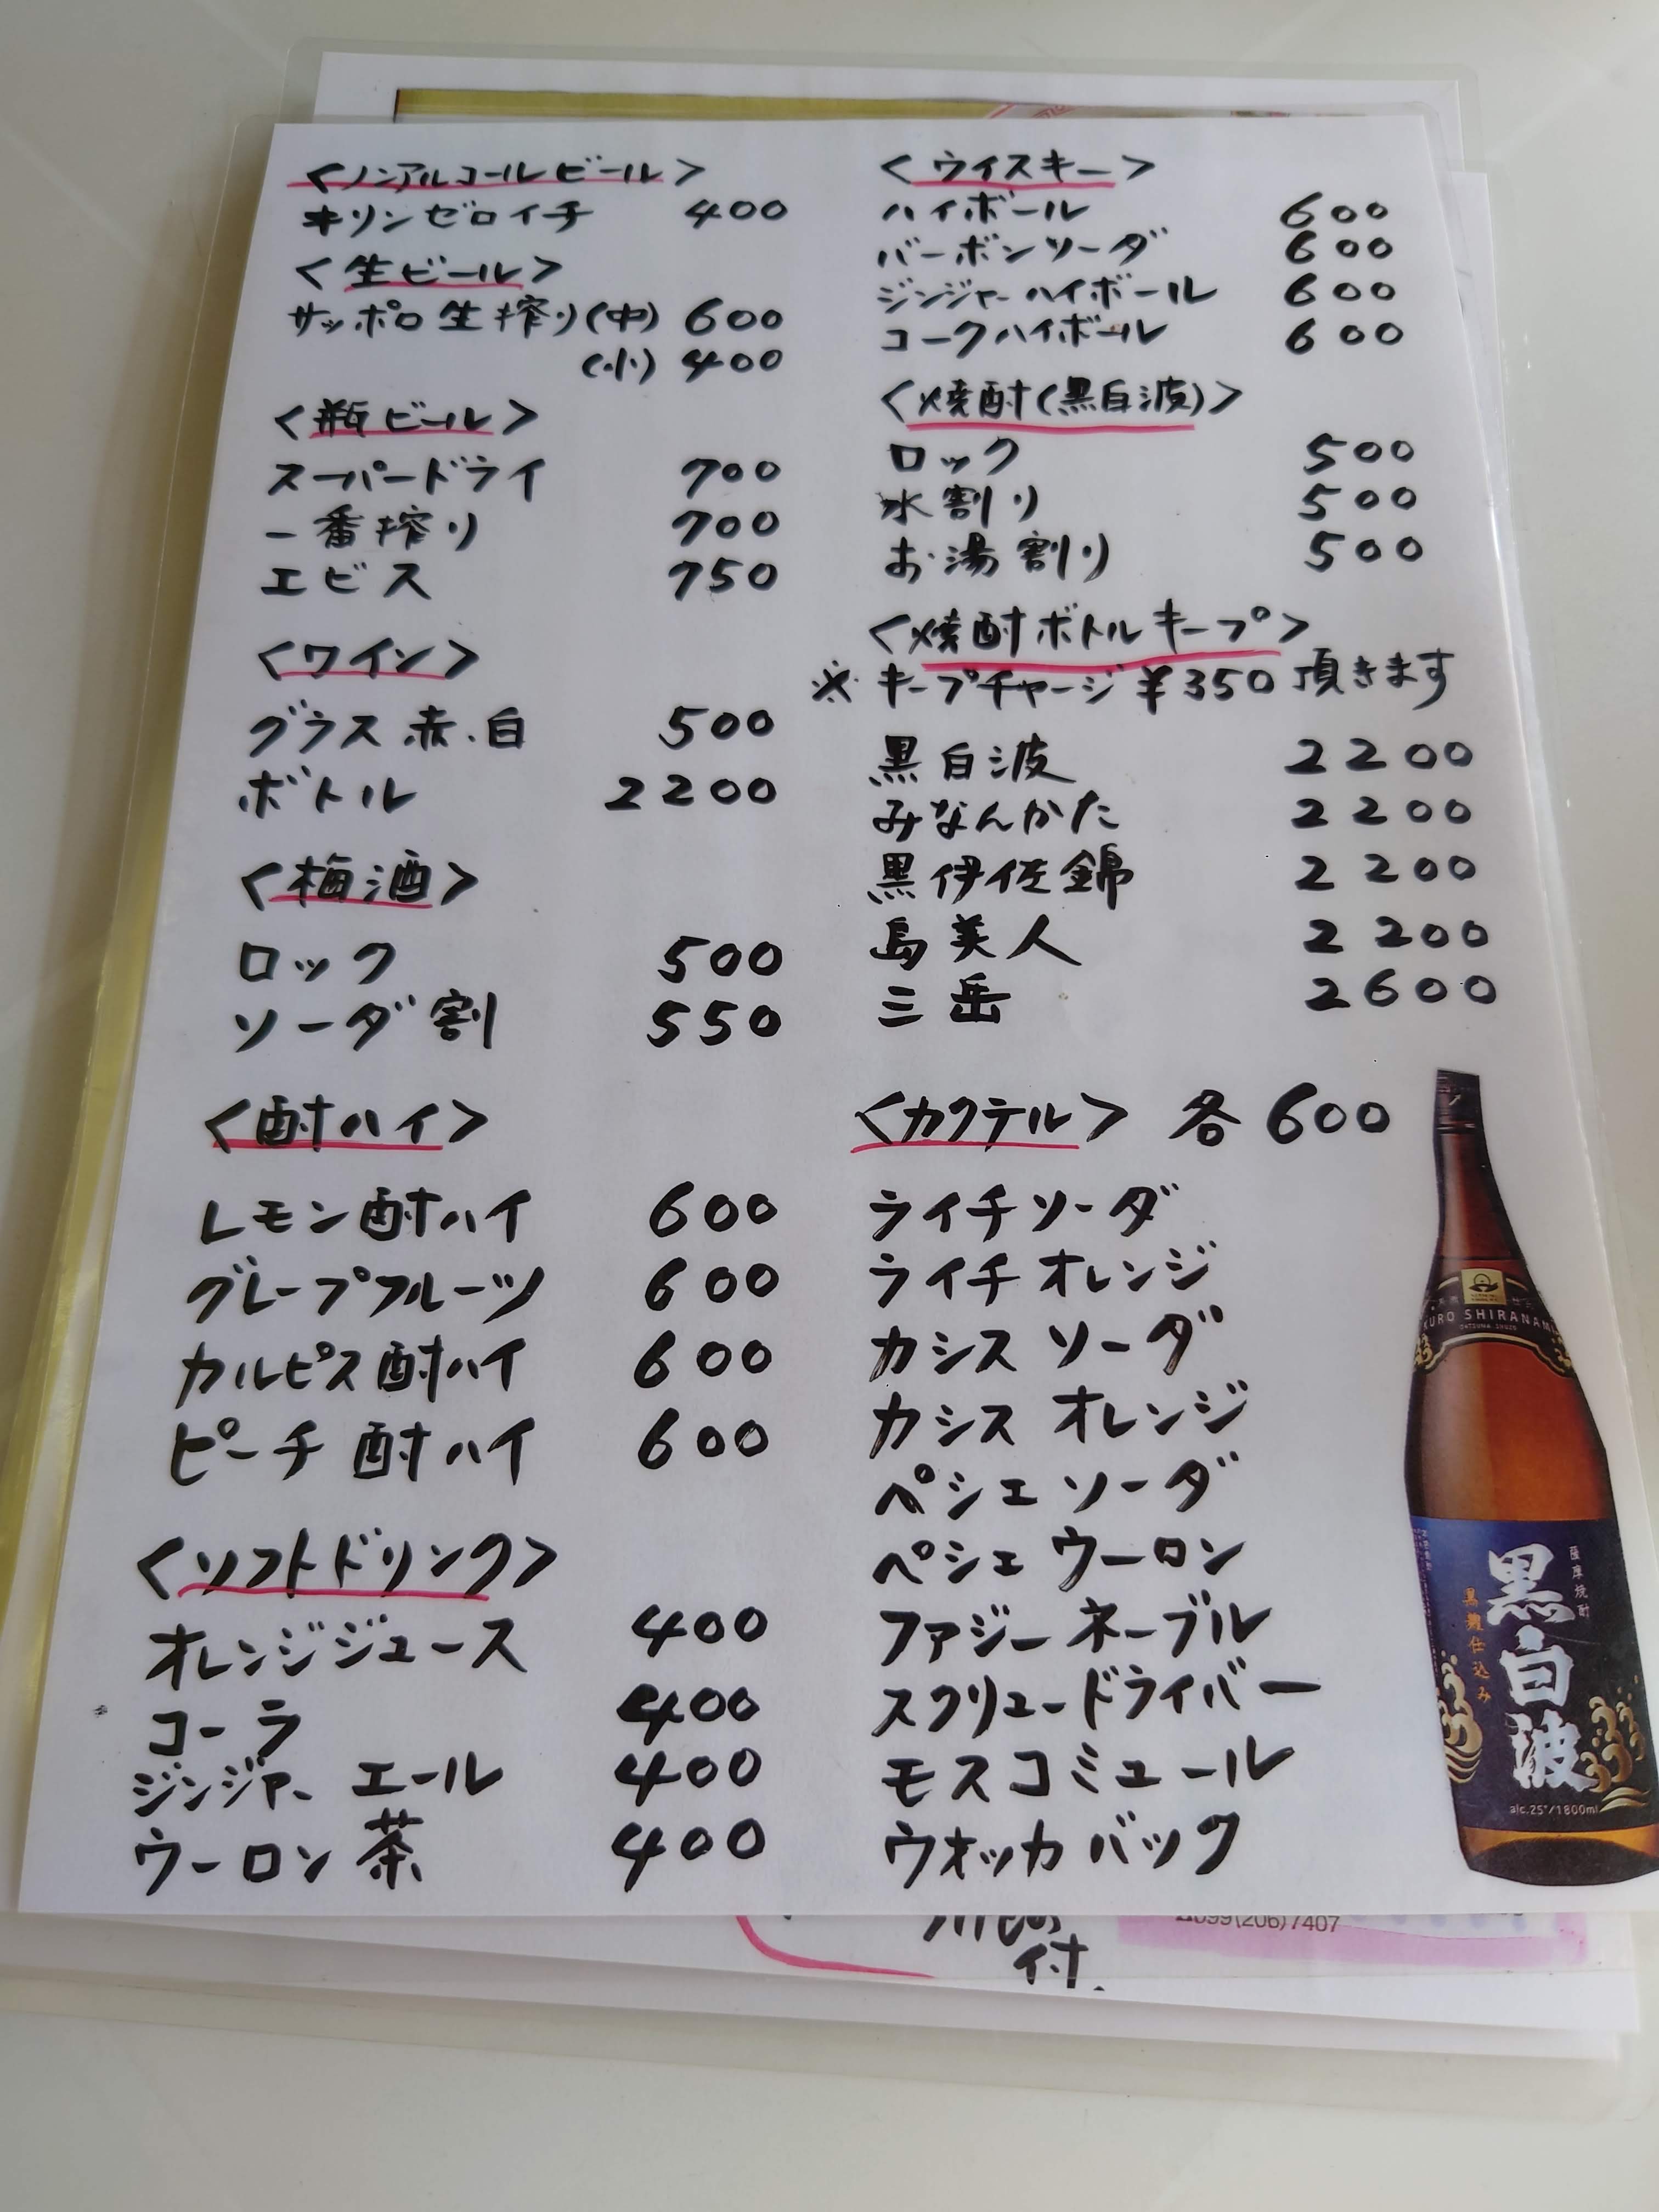 <ノンアルコールビール>
キリンゼロイチ 400
<生ビール>
サッポロ生搾り(中) 600
(小) 400
<瓶ビール>
スーパードライ 700
一番搾り 700
エビス 750
<ワイン>
グラス 赤.白 500
ボトル 2200
<梅酒>
ロック 500
ソーダ割 550
<酎ハイ>
レモン酎ハイ 600
グレープフルーツ 600
カルピス酎ハイ 600
ピーチ酎ハイ 600
<ソフトドリンク>
オレンジジュース 400
コーラ 400
ジンジャーエール 400
ウーロン茶 400
<ウイスキー>
ハイボール 600
バーボンソーダ 600
ジンジャーハイボール 600
コークハイボール 600
<焼酎(黒白波)>
ロック 500
水割り 500
お湯割り 500
<焼酎ボトルキープ>
※キープチャージ¥350頂きます
黒白波 2200
みなんかた 2200
黒伊佐錦 2200
島美人 2200
三岳 2600
<カクテル> 各600
ライチソーダ
ライチオレンジ
カシスソーダ
カシスオレンジ
ペシェソーダ
ペシェウーロン
ファジーネーブル
スクリュードライバー
モスコミュール
ウオッカバック
KURO SHIRANAMI
SATSUMA SHOCHU
薩摩焼酎
黒白波
黒麹仕込み
alc.25°/1800ml
付
099(206)7407